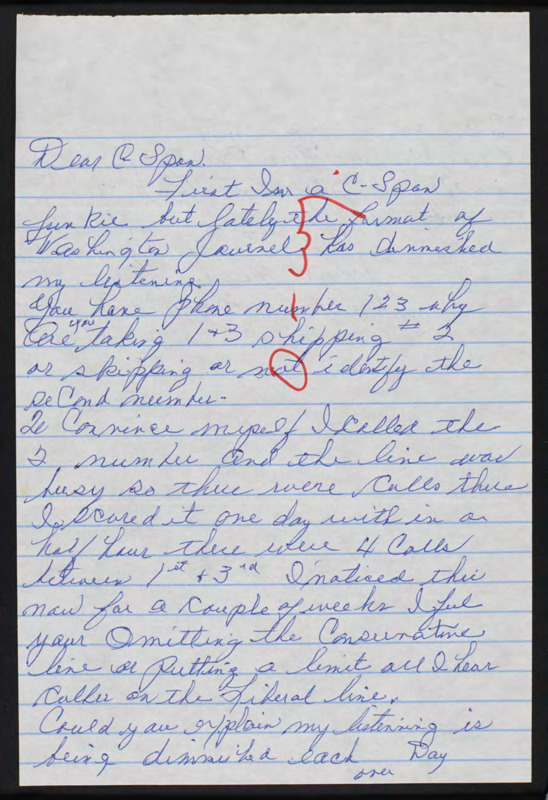 Dear C-Span.
First Im a C-Span
junkie but lately the format of
Washington Journel has dimmished
my listening.
You have phone number 1 2 3 why
are you taking 1+3 shipping # 2
or skipping or not identify the
second number.
To Convince myself I called the
2 number and the line was
busy so there were calls there
I scored it one day with in a
half hour there were 4 Calls
between 1st + 3rd I noticed this
now for a couple of weeks I feel
your Omitting the Conservative
line or putting a limit all I hear
caller on the Liberal line.
Could you explain my listenning is
being dimmished each Day
over